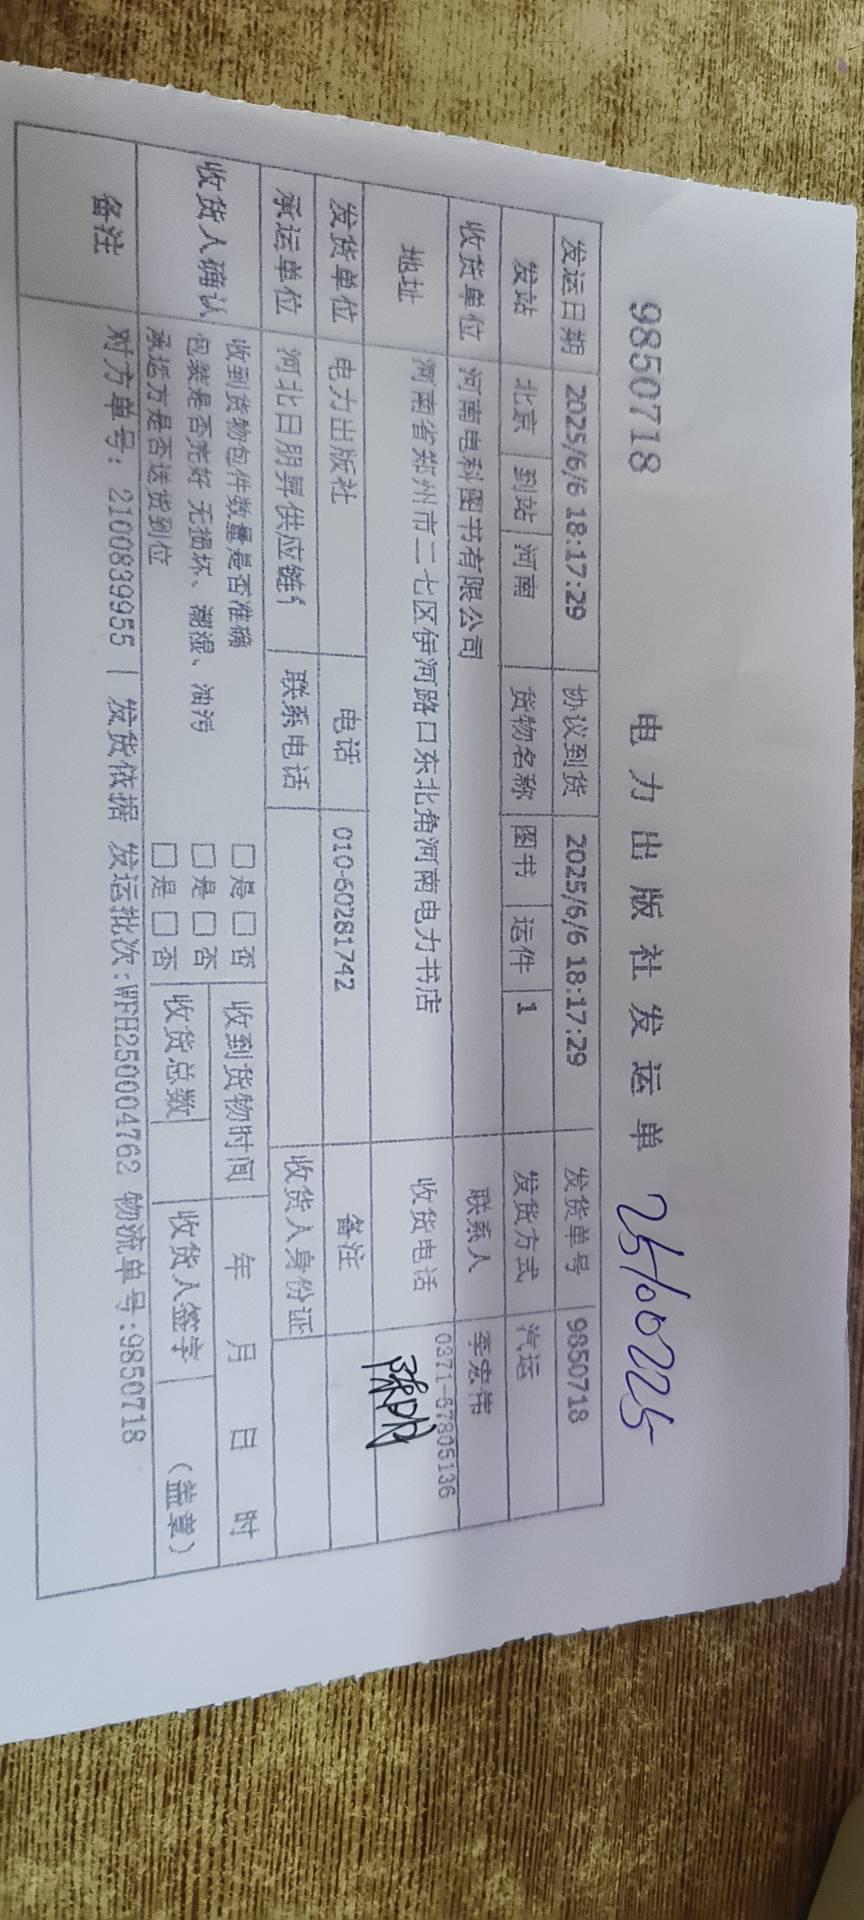 9850718 电力出版社发运单 25100225
发运日期 2025/6/6 18:17:29 协议到货 2025/6/6 18:17:29 发货单号 9850718
发站 北京 到站 河南 货物名称 图书 运件 1 发货方式 汽运
收货单位 河南电科图书有限公司 联系人 李宏伟
地址 河南省郑州市二七区伊河路口东北角河南电力书店 收货电话 0371-67805136
发货单位 电力出版社 电话 010-60281742 备注
承运单位 河北日朋昇供应链 联系电话 收货人身份证
收货人确认 收到货物包件数量是否准确 □是□否 收到货物时间 年 月 日 时
包装是否完好 无损坏、潮湿、油污 □是□否
承运方是否送货到位 □是□否 收货总数 收货人签字 (盖章)
备注 对方单号: 2100839955 | 发货依据 发运批次:WFH250004762 物流单号:9850718